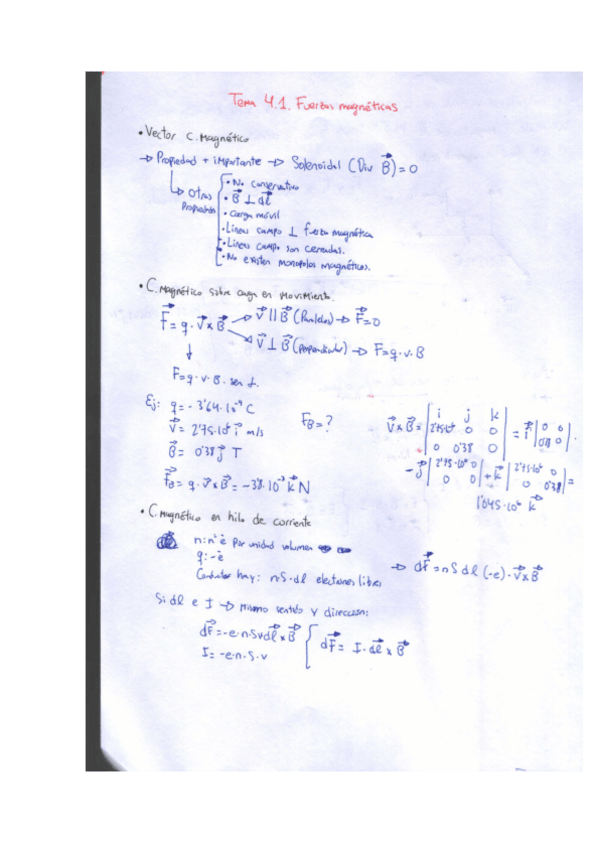 Tema 4.1. Fuerzas magnéticas
• Vector C. Magnético
→ Propiedad + importante → Solenoidal (Div B⃗) = 0
↳ Otras Propiedades
• No conservativo
• B⃗ ⊥ dl⃗
• Carga móvil
• Lineas campo ⊥ fuerza magnética
• Lineas campo son cerradas.
• No existen monopolos magnéticos.
• C. Magnético sobre carga en movimiento.
F⃗ = q · v⃗ x B⃗
→ v⃗ || B⃗ (Paralelas) → F⃗ = 0
→ v⃗ ⊥ B⃗ (perpendicular) → F = q · v · B
↓
F = q · v · B · sen α.
Ej: q = - 3'64 · 10⁻⁹ C
v⃗ = 2'75 · 10⁶ i⃗ m/s
B⃗ = 0'38 j⃗ T
F⃗B = q · v⃗ x B⃗ = -38 · 10⁻³ k⃗ N
FB = ?
v⃗ x B⃗ = | i j k | 2'75·10⁶ 0 0 | 0 0'38 0 | = i⃗ | 0 0 | 0'38 0 | -
- j⃗ | 2'75·10⁶ 0 | 0 0 | + k⃗ | 2'75·10⁶ 0 | 0 0'38 | =
1'045 · 10⁶ k⃗
• C. Magnético en hilo de corriente
n: nº e⁻ por unidad volumen
q: -e
Conductor hay: n·S·dl electrones libres
→ dF⃗ = n S dl (-e) · v⃗ x B⃗
Si dl e I → mismo sentido y dirección:
dF⃗ = -e·n·S v dl⃗ x B⃗
I = -e·n·S·v
dF⃗ = I · dl⃗ x B⃗